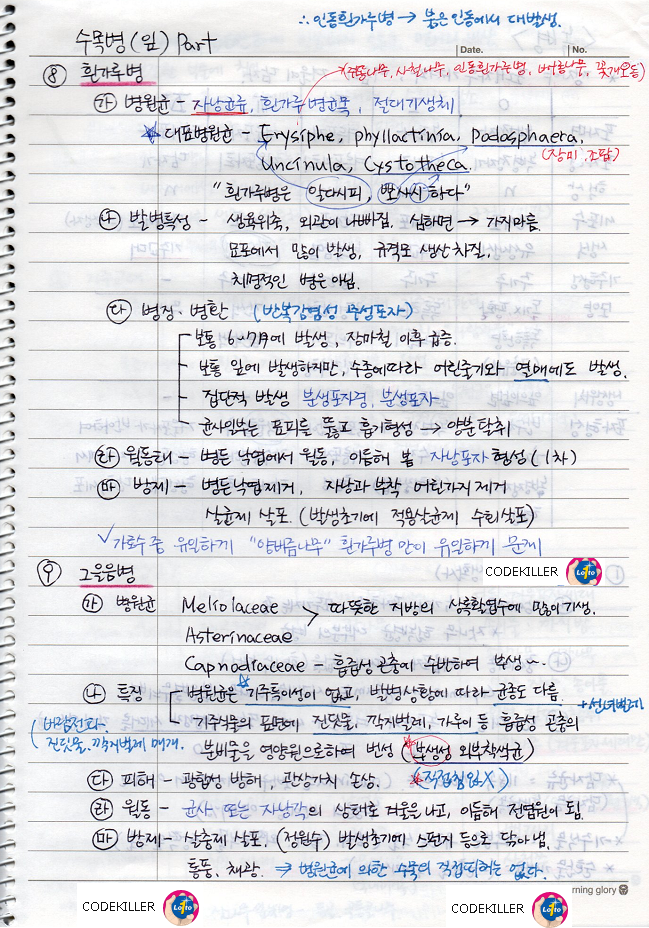 ∴ 인동흰가루병 → 붉은인동에서 대발생.
수목병(잎) Part
Date. No.
⑧ 흰가루병
*(쥐똥나무, 사철나무, 인동흰가루병, 버즘나무, 꽃개오동)
㉮ 병원균 - 자낭균류, 흰가루병균목, 절대기생체
대표병원균 - Erysiphe, phyllactinia, Podosphaera,
(장미, 조팝)
Uncinula, Cystotheca.
"흰가루병은 알다시피, 뽀사시하다"
㉯ 발병특성 - 생육위축, 외관이 나빠짐, 심하면 → 가지마름
묘포에서 많이 발생, 규격묘 생산차질.
치명적인 병은 아님.
㉰ 병징·병환 (반복감염성 무성포자)
보통 6~7월에 발생, 장마철 이후 급증.
- 보통 잎에 발생하지만, 수종에따라 어린줄기와 열매에도 발생.
- 집단적 발생 분생포자경, 분생포자
균사일부는 표피를 뚫고 흡기형성 → 양분탈취
㉱ 월동태 - 병든 낙엽에서 월동, 이듬해 봄 자낭포자 형성(1차)
㉲ 방제 - 병든낙엽제거, 자낭과 부착 어린가지 제거
살균제 살포. (발생초기에 적용살균제 수회살포)
√ 가로수 중 유일하게 "양버즘나무" 흰가루병 만이 유일하게 문제
CODEKILLER Lotto
⑨ 그을음병
㉮ 병원균 Meliolaceae > 따뜻한 지방의 상록활엽수에 많이기생.
Asterinaceae
Capnodiaceae - 흡즙성 곤충에 수반하여 발생~.
㉯ 특징 병원균은 기주특이성이 없고, 발병상황에 따라 균종도 다름.
+선녀벌레
기주식물의 표면에 진딧물, 깍지벌레, 가루이 등 흡즙성 곤충의
(버림전파.
진딧물. 깍지벌레 매개.
분비물을 영양원으로하여 번성 (부생성 외부착색균)
㉰ 피해 - 광합성 방해, 관상가치 손상. *(직접침입X)
㉱ 월동 - 균사 또는 자낭각의 상태로 겨울을 나고, 이듬해 전염원이 됨.
㉲ 방제 - 살충제 살포. (정원수) 발생초기에 스펀지 등으로 닦아냄.
통풍, 채광. → 병원균에 의한 수목의 직접피해는 없다.
rning glory
CODEKILLER Lotto
CODEKILLER Lotto